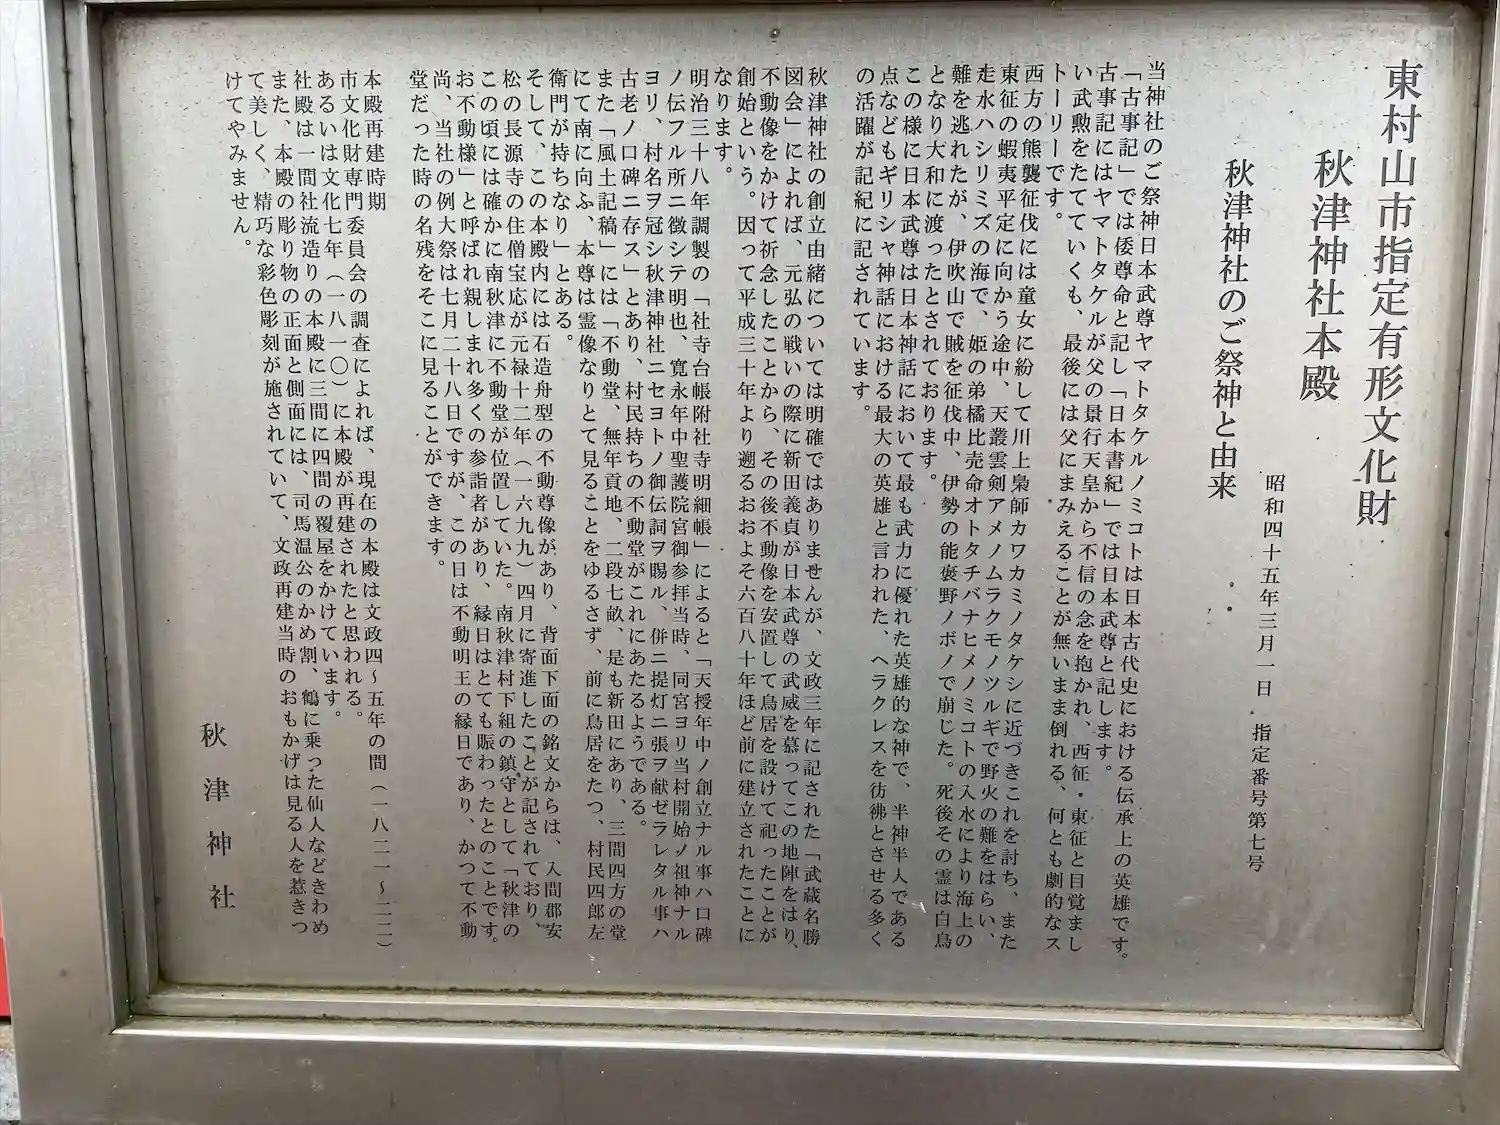 東村山市指定有形文化財
秋津神社本殿
昭和四十五年三月一日 指定番号第七号
秋津神社のご祭神と由来
当神社のご祭神日本武尊ヤマトタケルノミコトは日本古代史における伝承上の英雄です。
「古事記」では倭尊命と記し「日本書紀」では日本武尊と記します。
古事記にはヤマトタケルが父の景行天皇から不信の念を抱かれ、西征・東征と目覚まし
い武勲をたてていくも、最後には父にまみえることが無いまま倒れる、何とも劇的なス
トーリーです。
西方の熊襲征伐には童女に紛して川上梟師カワカミノタケシに近づきこれを討ち、また
東征の蝦夷平定に向かう途中、天叢雲剣アメノムラクモノツルギで野火の難をはらい、
走水ハシリミズの海で、姫の弟橘比売命オトタチバナヒメノミコトの入水により海上の
難を逃れたが、伊吹山で賊を征伐中、伊勢の能褒野ノボノで崩じた。死後その霊は白鳥
となり大和に渡ったとされております。
この様に日本武尊は日本神話において最も武力に優れた英雄的な神で、半神半人である
点などもギリシャ神話における最大の英雄と言われた、ヘラクレスを彷彿とさせる多く
の活躍が記紀に記されています。
秋津神社の創立由緒については明確ではありませんが、文政三年に記された「武蔵名勝
図会」によれば、元弘の戦いの際に新田義貞が日本武尊の武威を慕ってこの地陣をはり、
不動像をかけて祈念したことから、その後不動像を安置して鳥居を設けて祀ったことが
創始という。因って平成三十年より遡るおおよそ六百八十年ほど前に建立されたことに
なります。
明治三十八年調製の「社寺台帳附社寺明細帳」によると「天授年中ノ創立ナル事ハ口碑
ノ伝フル所ニ徴シテ明也、寛永年中聖護院宮御参拝当時、同宮ヨリ当村開始ノ祖神ナル
ヨリ、村名ヲ冠シ秋津神社ニセヨトノ御伝詞ヲ賜ル、併ニ提灯ニ張ヲ献ゼラレタル事ハ
古老ノ口碑ニ存ス」とあり、村民持ちの不動堂がこれにあたるようである。
また「風土記稿」には「不動堂、無年貢地、二段七畝、是も新田にあり、三間四方の堂
にて南に向ふ、本尊は霊像なりとて見ることをゆるさず、前に鳥居をたつ、村民四郎左
衛門が持ちなり」とある。
そして、この本殿内には石造舟型の不動尊像があり、背面下面の銘文からは、入間郡安
松の長源寺の住僧宝応が元禄十二年（一六九九）四月に寄進したことが記されており、
この頃には確かに南秋津に不動堂が位置していた。南秋津村下組の鎮守として「秋津の
お不動様」と呼ばれ親しまれ多くの参詣者があり、縁日はとても賑わったとのことです。
尚、当社の例大祭は七月二十八日ですが、この日は不動明王の縁日であり、かつて不動
堂だった時の名残をそこに見ることができます。
本殿再建時期
市文化財専門委員会の調査によれば、現在の本殿は文政四～五年の間（一八二一～二二）
あるいは文化七年（一八一〇）に本殿が再建されたと思われる。
社殿は一間社流造りの本殿に三間に四間の覆屋をかけています。
また、本殿の彫り物の正面と側面には、司馬温公のかめ割、鶴に乗った仙人などきわめ
て美しく、精巧な彩色彫刻が施されていて、文政再建当時のおもかげは見る人を惹きつ
けてやみません。
秋津神社